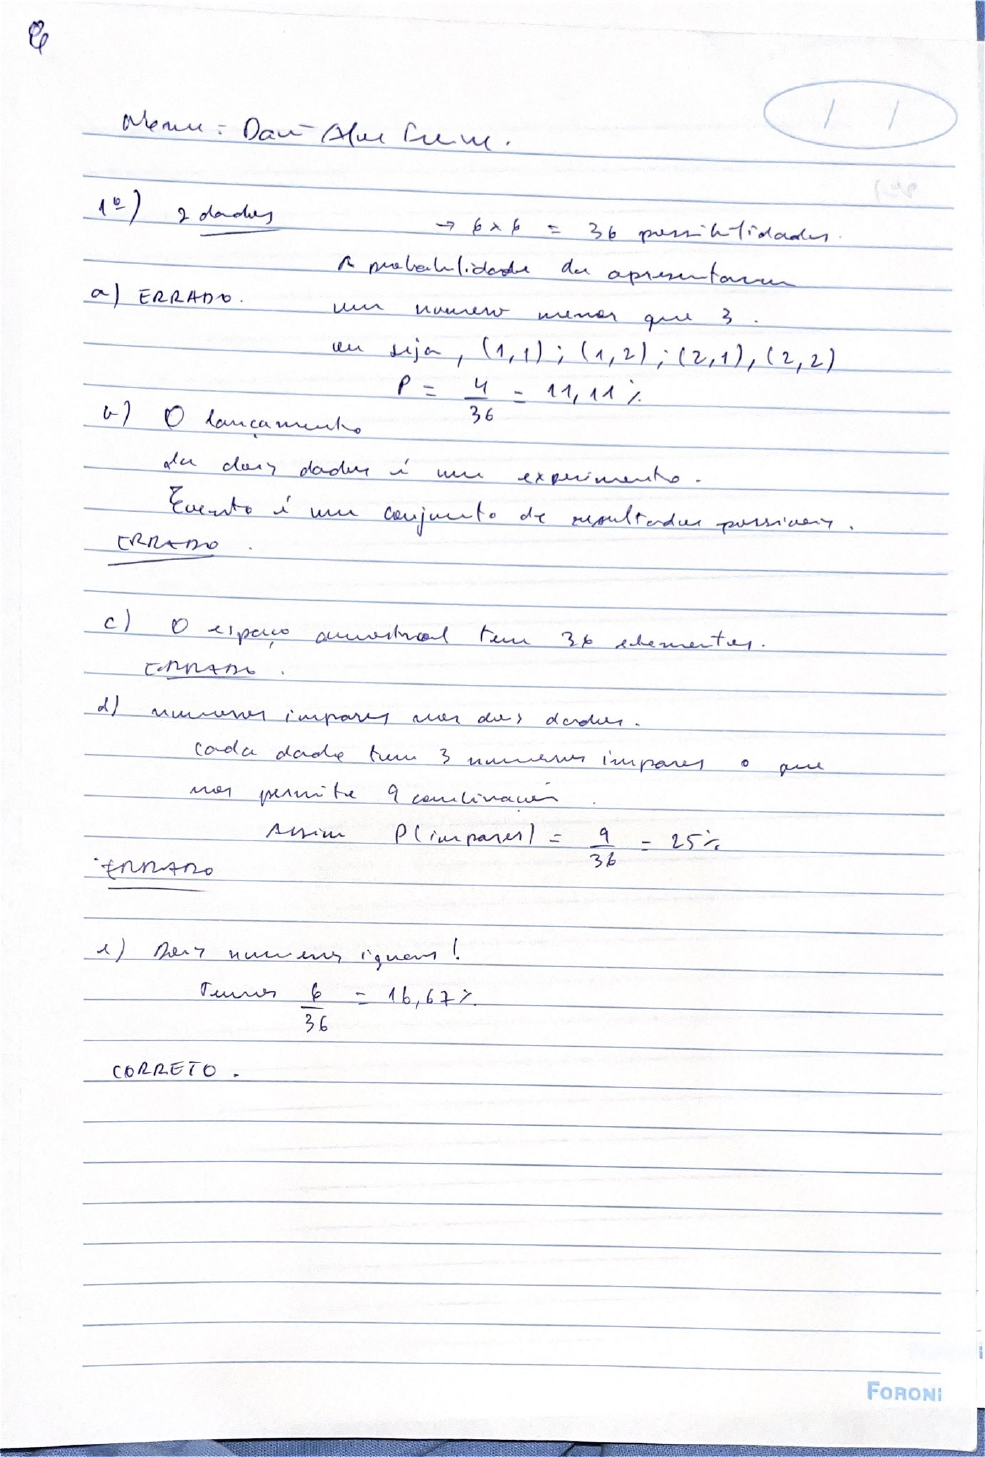 Nome: Davi
1º) 2 dados → 6 x 6 = 36 possibilidades.
A probabilidade de apresentarem
a) ERRADO. um numero menor que 3.
ou seja, (1,1); (1,2); (2,1), (2,2)
P = 4/36 = 11,11 %
b) O lançamento
de dois dados é um experimento.
Evento é um conjunto de resultados possiveis.
ERRADO.
c) O espaço amostral tem 36 elementos.
ERRADO.
d) numeros impares nos dois dados.
Cada dado tem 3 numeros impares o que
nos permite 9 combinações.
Assim P(impares) = 9/36 = 25%
ERRADO
e) Dois numeros iguais!
Temos 6/36 = 16,67%
CORRETO.
FORONI